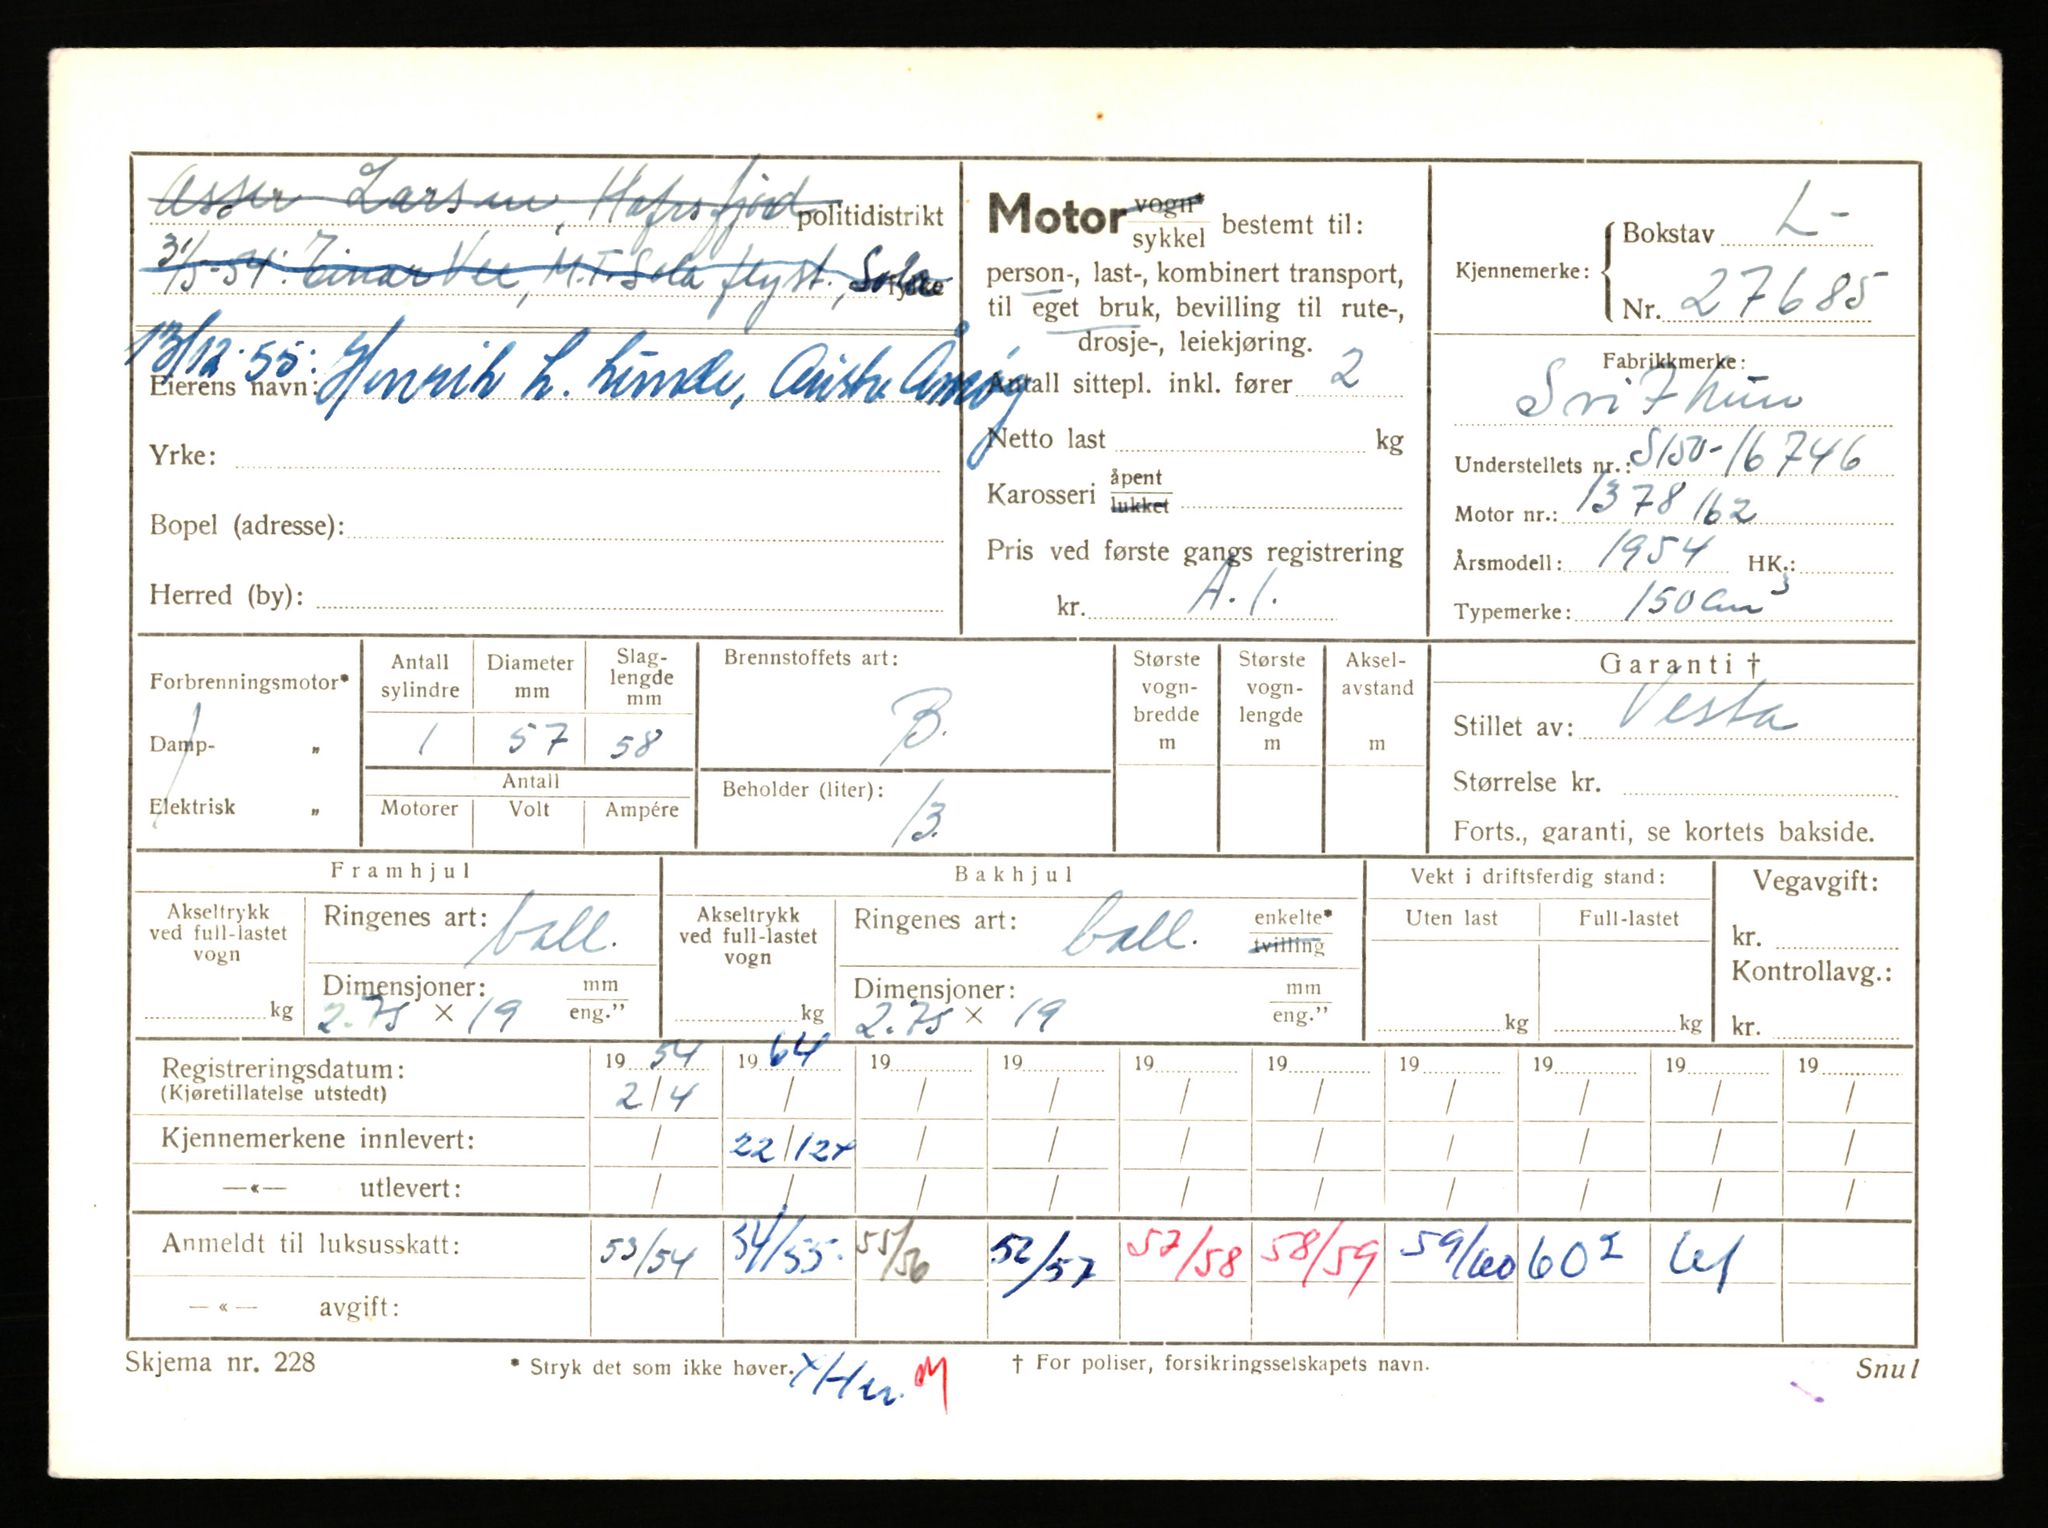 Asser Larsen, Hafrsfjord politidistrikt
31/5-54: Einar Vee, M.T. Sola flyst., Sola
13/12-55:
Eierens navn: Henrik L. Lunde, Austre Åmøy
Yrke:
Bopel (adresse):
Herred (by):
Motor vogn* sykkel bestemt til:
person-, last-, kombinert transport,
til eget bruk, bevilling til rute-,
drosje-, leiekjøring.
Antall sittepl. inkl. fører 2
Netto last kg
Karosseri åpent lukket
Pris ved første gangs registrering
kr. A.1.
Kjennemerke: Bokstav L-
Nr. 27685
Fabrikkmerke:
Svithun
Understellets nr.: S150-16746
Motor nr.: 1378162
Årsmodell: 1954 HK.:
Typemerke: 150 cm3
Forbrenningsmotor*
Damp- „
Elektrisk „
Antall sylindre
Diameter mm
Slag-
lengde
mm
1 57 58
Antall
Motorer Volt Ampére
Brennstoffets art:
B.
Beholder (liter):
13.
Største
vogn-
bredde
m
Største
vogn-
lengde
m
Aksel-
avstand
m
Garanti †
Stillet av: Vesta
Størrelse kr.
Forts., garanti, se kortets bakside.
Framhjul
Akseltrykk
ved full-lastet
vogn
kg
Ringenes art: ball.
Dimensjoner: mm
2.75 × 19 eng."
Bakhjul
Akseltrykk
ved full-lastet
vogn
kg
Ringenes art: ball. enkelte*
tvilling
Dimensjoner: mm
2.75 × 19 eng."
Vekt i driftsferdig stand:
Uten last Full-lastet
kg kg
Vegavgift:
kr.
Kontrollavg.:
kr.
Registreringsdatum: 19 54 19 64 19 19 19 19 19 19 19 19
(Kjøretillatelse utstedt) 2/4 / / / / / / / / /
Kjennemerkene innlevert: / 22/12x / / / / / / / /
—«— utlevert: / / / / / / / / / /
Anmeldt til luksusskatt: 53/54 54/55. 55/56 52/57 57/58 58/59 59/60 60² 61
—«— avgift:
Skjema nr. 228
* Stryk det som ikke høver.
† For poliser, forsikringsselskapets navn.
Snul